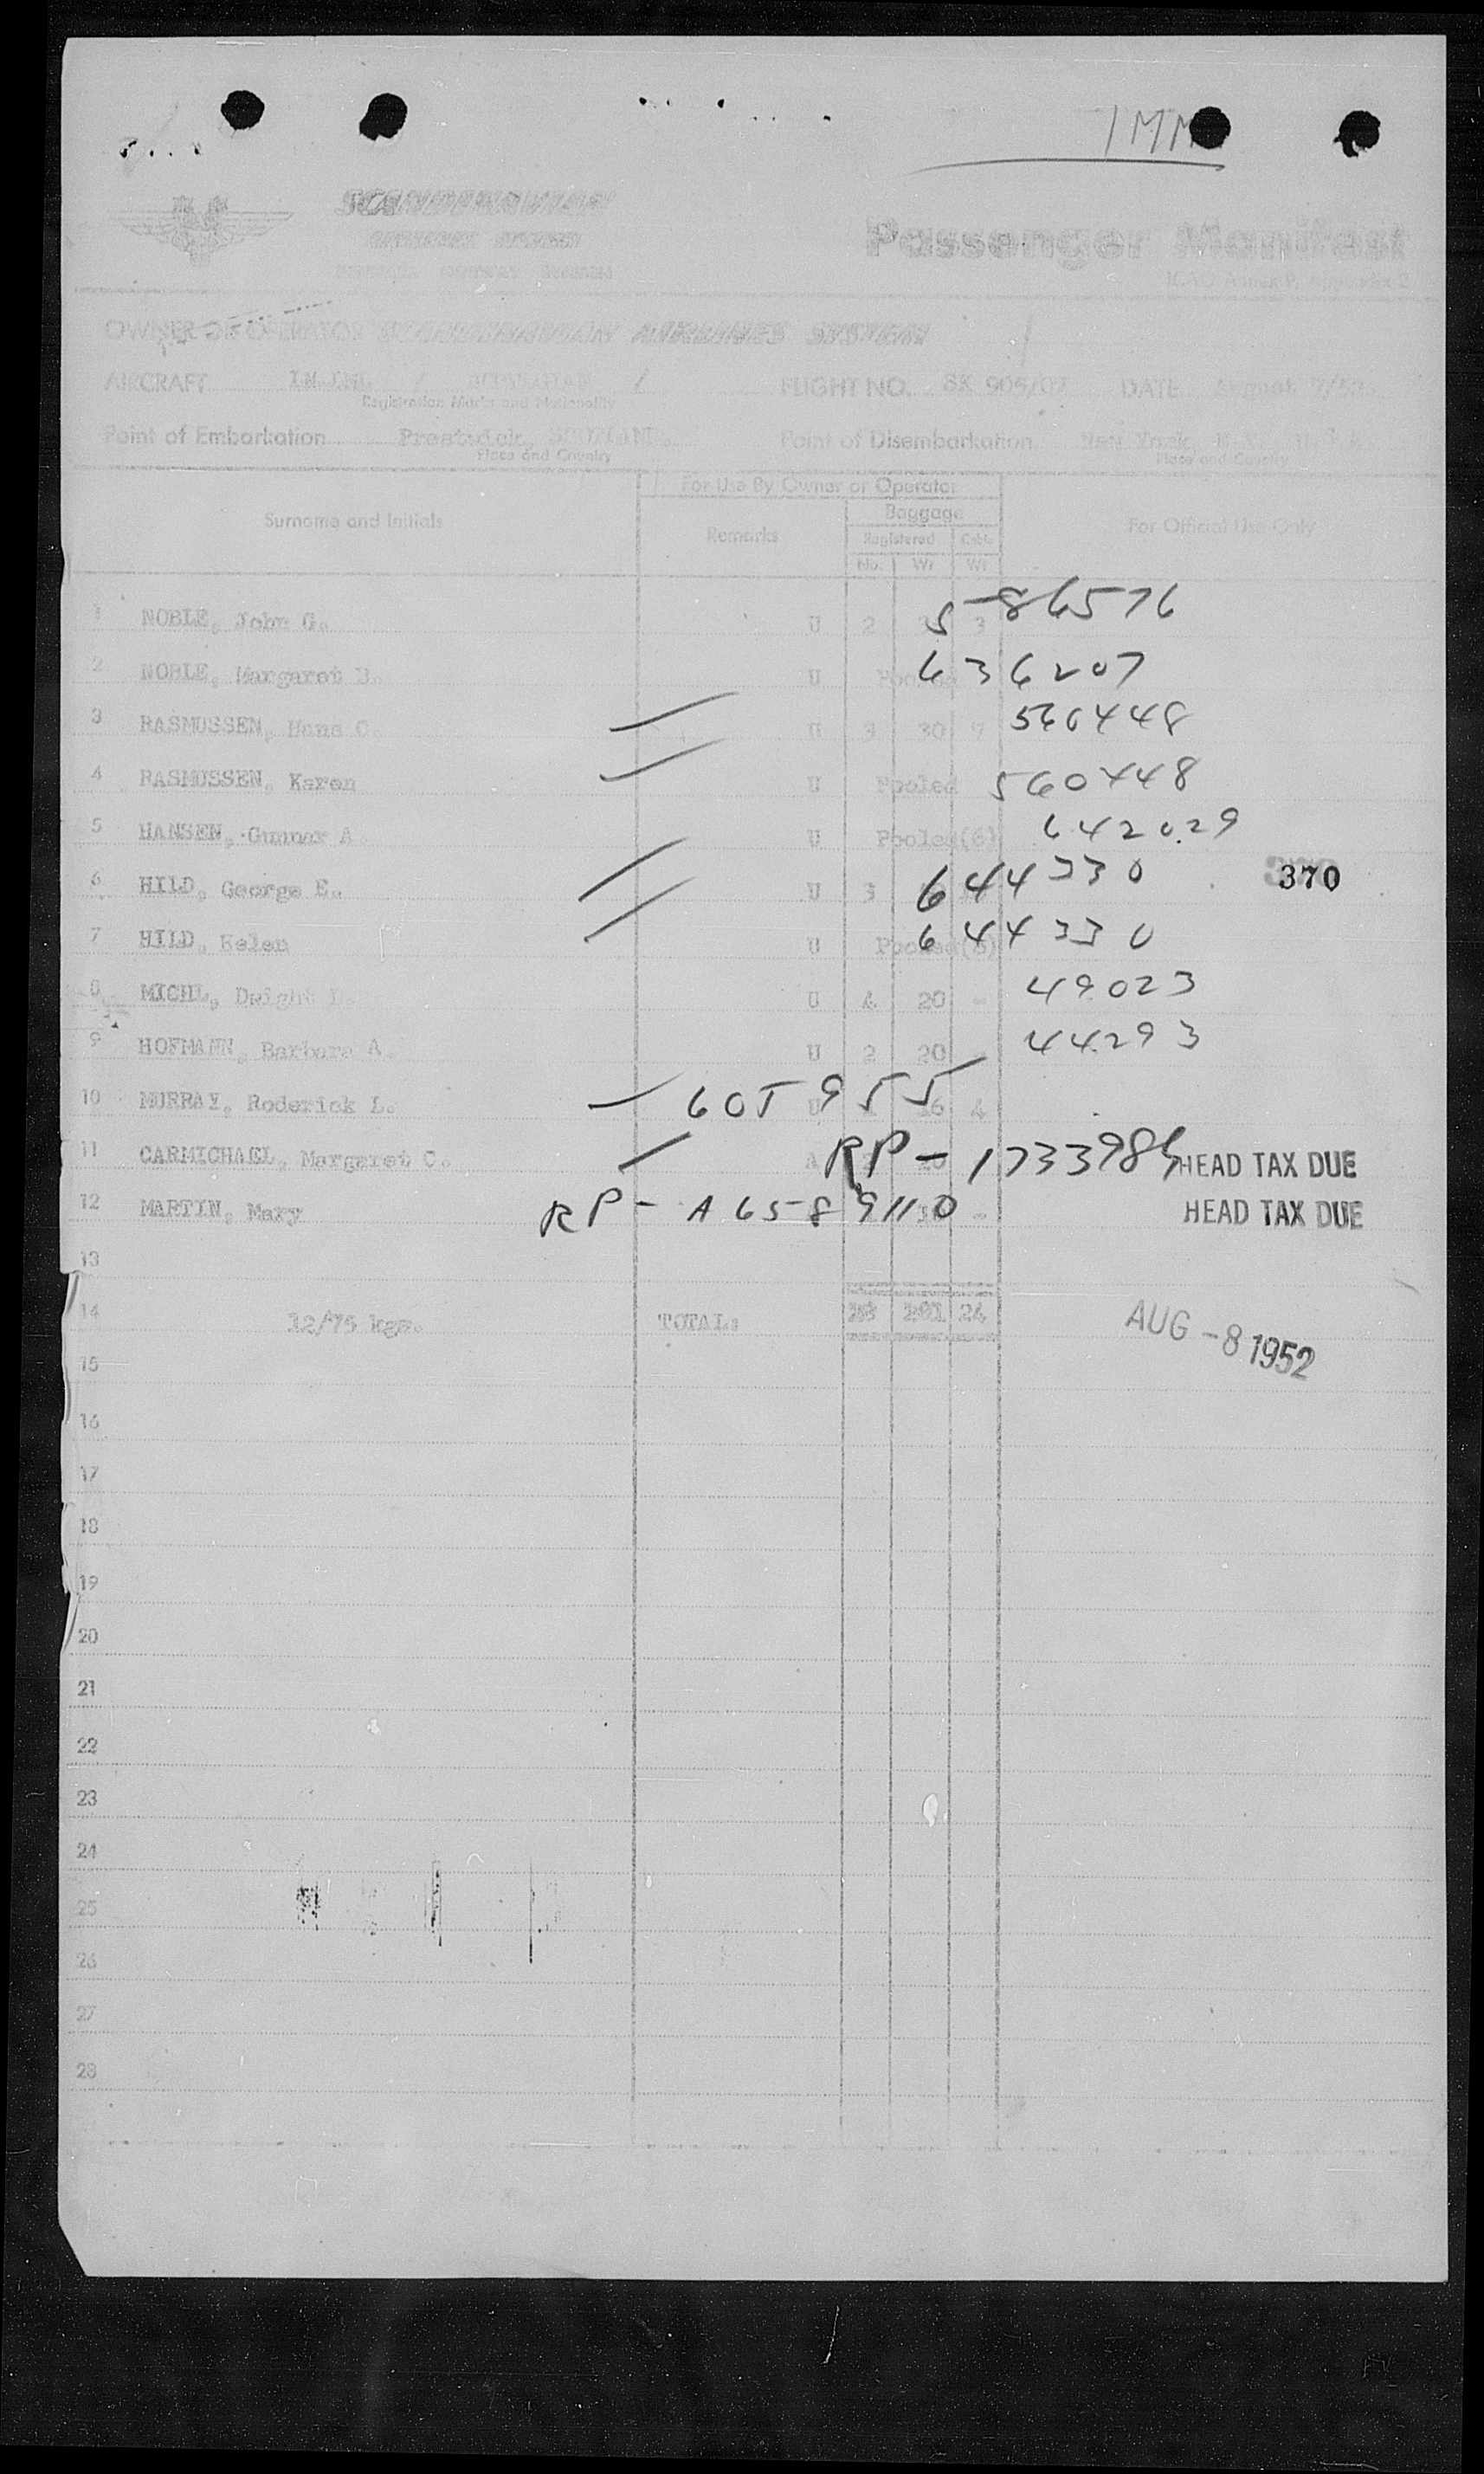 IMM
SCANDINAVIAN
AIRLINES SYSTEM
DENMARK NORWAY SWEDEN
Passenger Manifest
ICAO Annex 9, Appendix 2
OWNER OR OPERATOR SCANDINAVIAN AIRLINES SYSTEM
AIRCRAFT / / FLIGHT NO. SK 905/07 DATE August 7/52
Registration Marks and Nationality
Point of Embarkation Prestwick, SCOTLAND. Point of Disembarkation New York, N.Y. U.S.A.
Place and Country Place and Country
For Use By Owner or Operator
Surname and Initials Remarks Baggage For Official Use Only
Registered Cabin
No. Wt Wt
1 NOBLE, John G. U 2 3 5-86576
2 NOBLE, Margaret U 636207
3 RASMUSSEN, Hans C. U 3 30 7 560448
4 RASMUSSEN, Karen U Pooled 560448
5 HANSEN, Gunnar A U Pooled(6) 642029
6 HILD, George E. U 3 644330 370
7 HILD, Helen U Pooled 644330
8 MICHL, Dwight U 4 20 - 49023
9 HOFMANN, Barbara A. U 2 20 44293
10 MURRAY, Roderick L. U 16 4 605955
11 CARMICHAEL, Margaret C. A RP- HEAD TAX DUE
12 MARTIN, Mary RP-A6589110 - HEAD TAX DUE
13
14 12/75 kgs. TOTAL: 24
AUG -8 1952
15
16
17
18
19
20
21
22
23
24
25
26
27
28